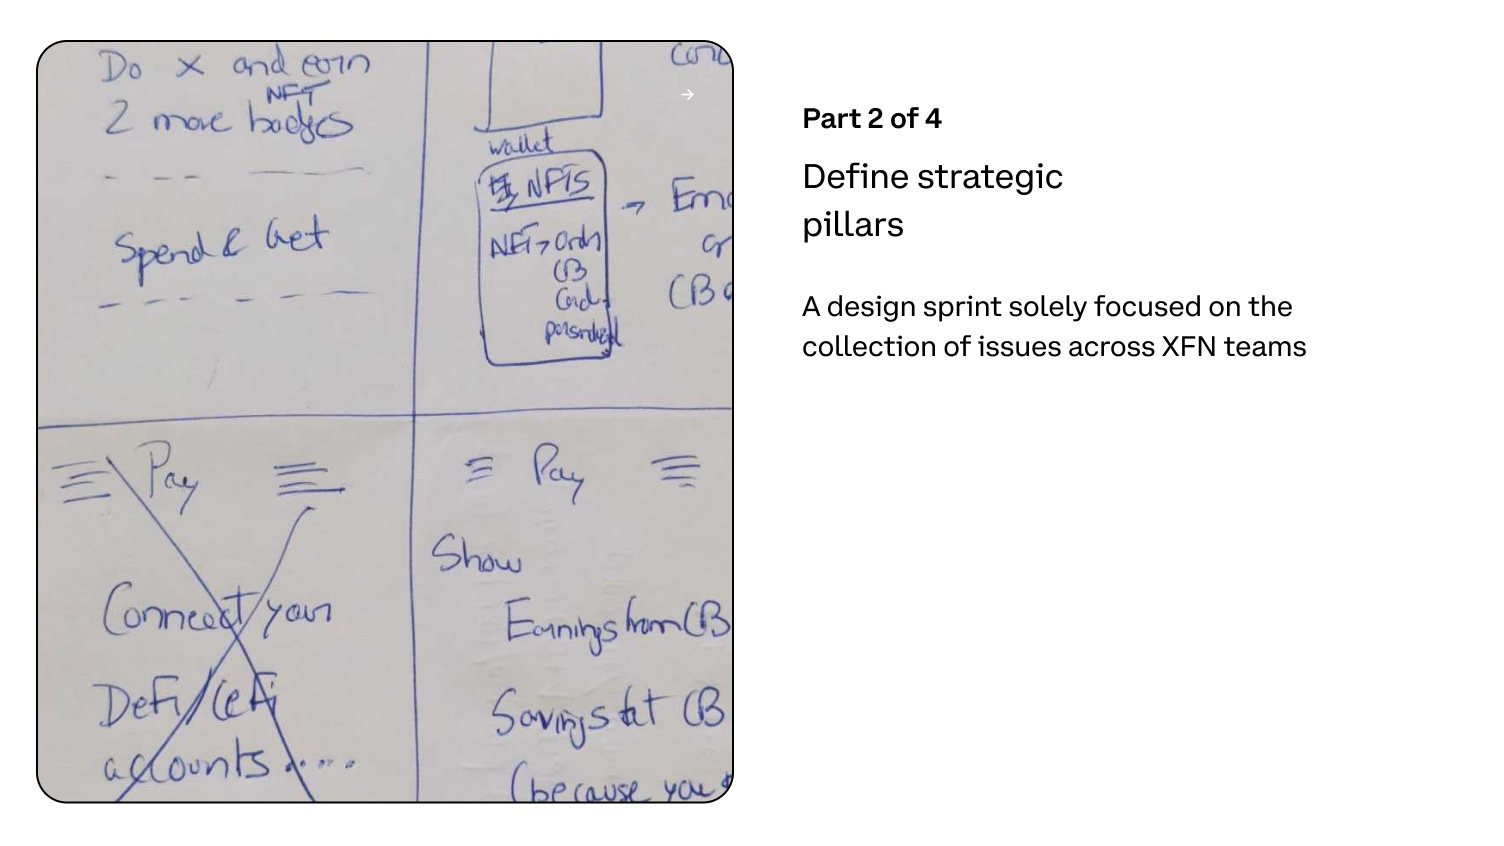 Do X and earn
NFT
2 more badges
Spend & Get
wallet
NFTS
NFT → Ordn
CB
Card
Pay
Connect your
DeFi/CeFi
accounts....
Pay
Show
Earnings from CB
Savings at CB
(because you
Part 2 of 4
Define strategic
pillars
A design sprint solely focused on the
collection of issues across XFN teams